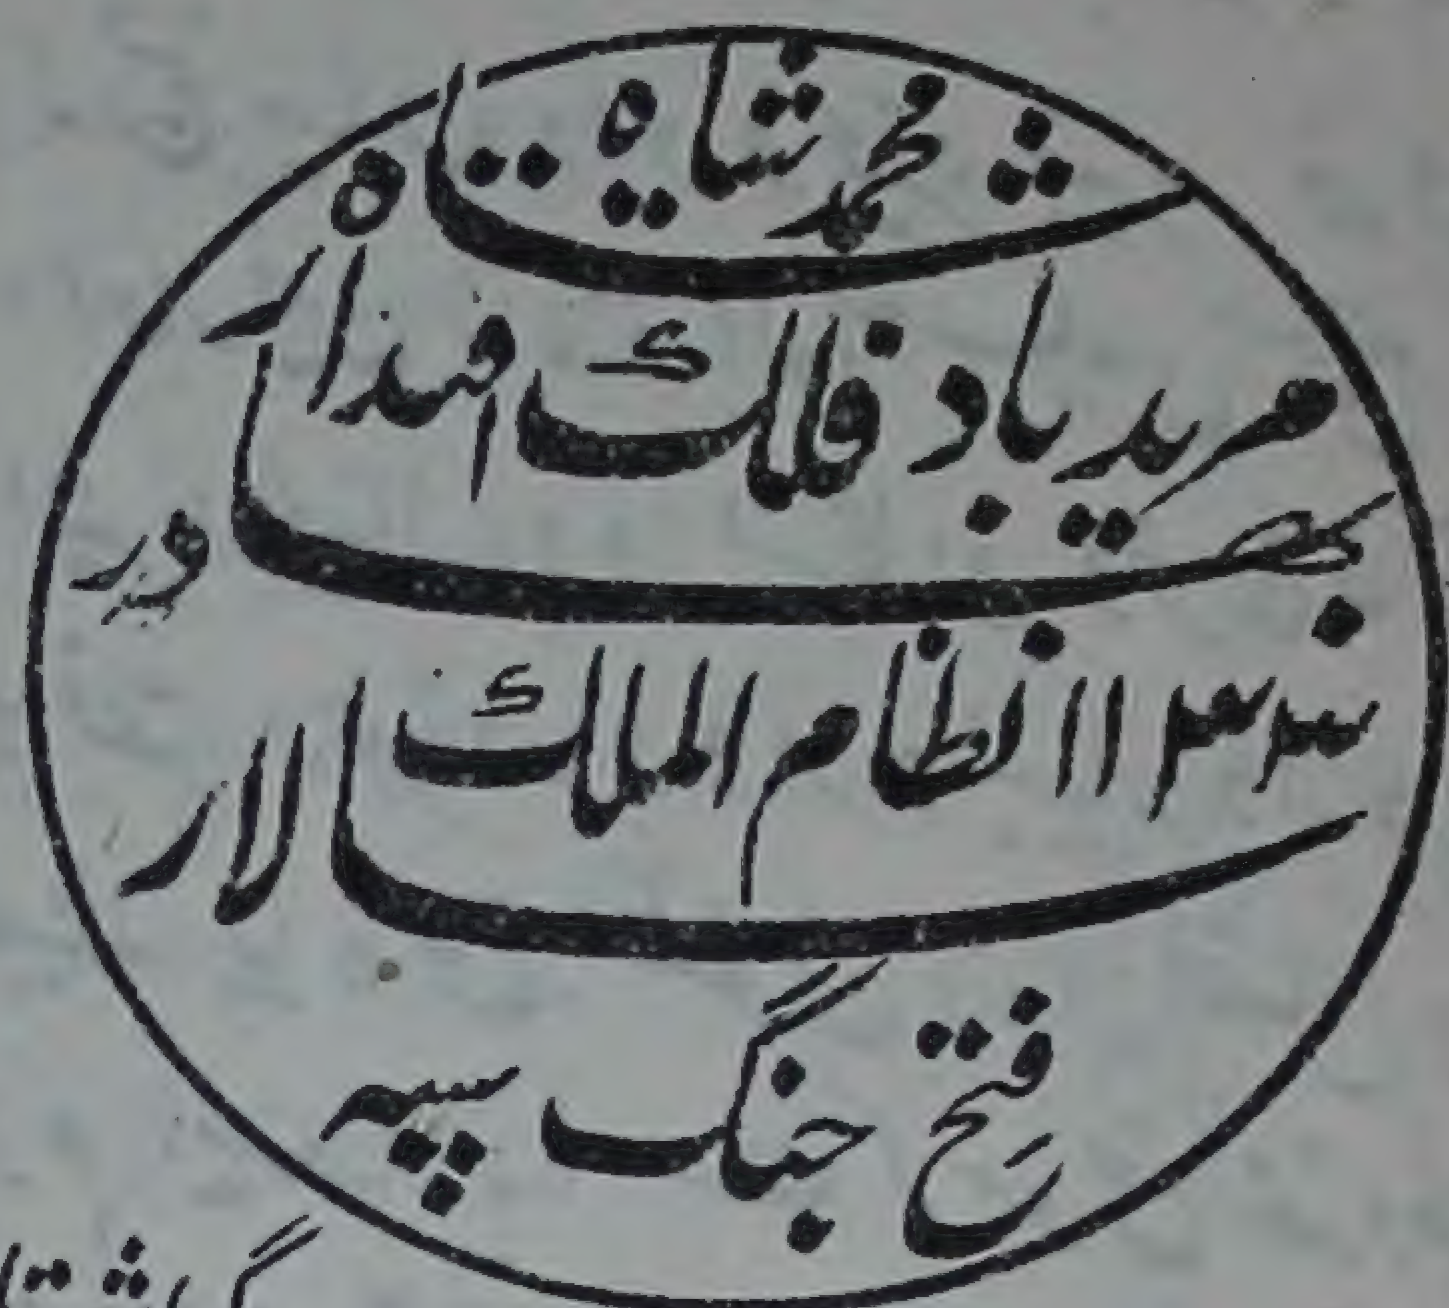 محمد شاہ
شاہ
مرید باد فلک اقتدار
بھادر
۱۱۳۳ نظام الملک
سالار
فتح جنگ سپہ